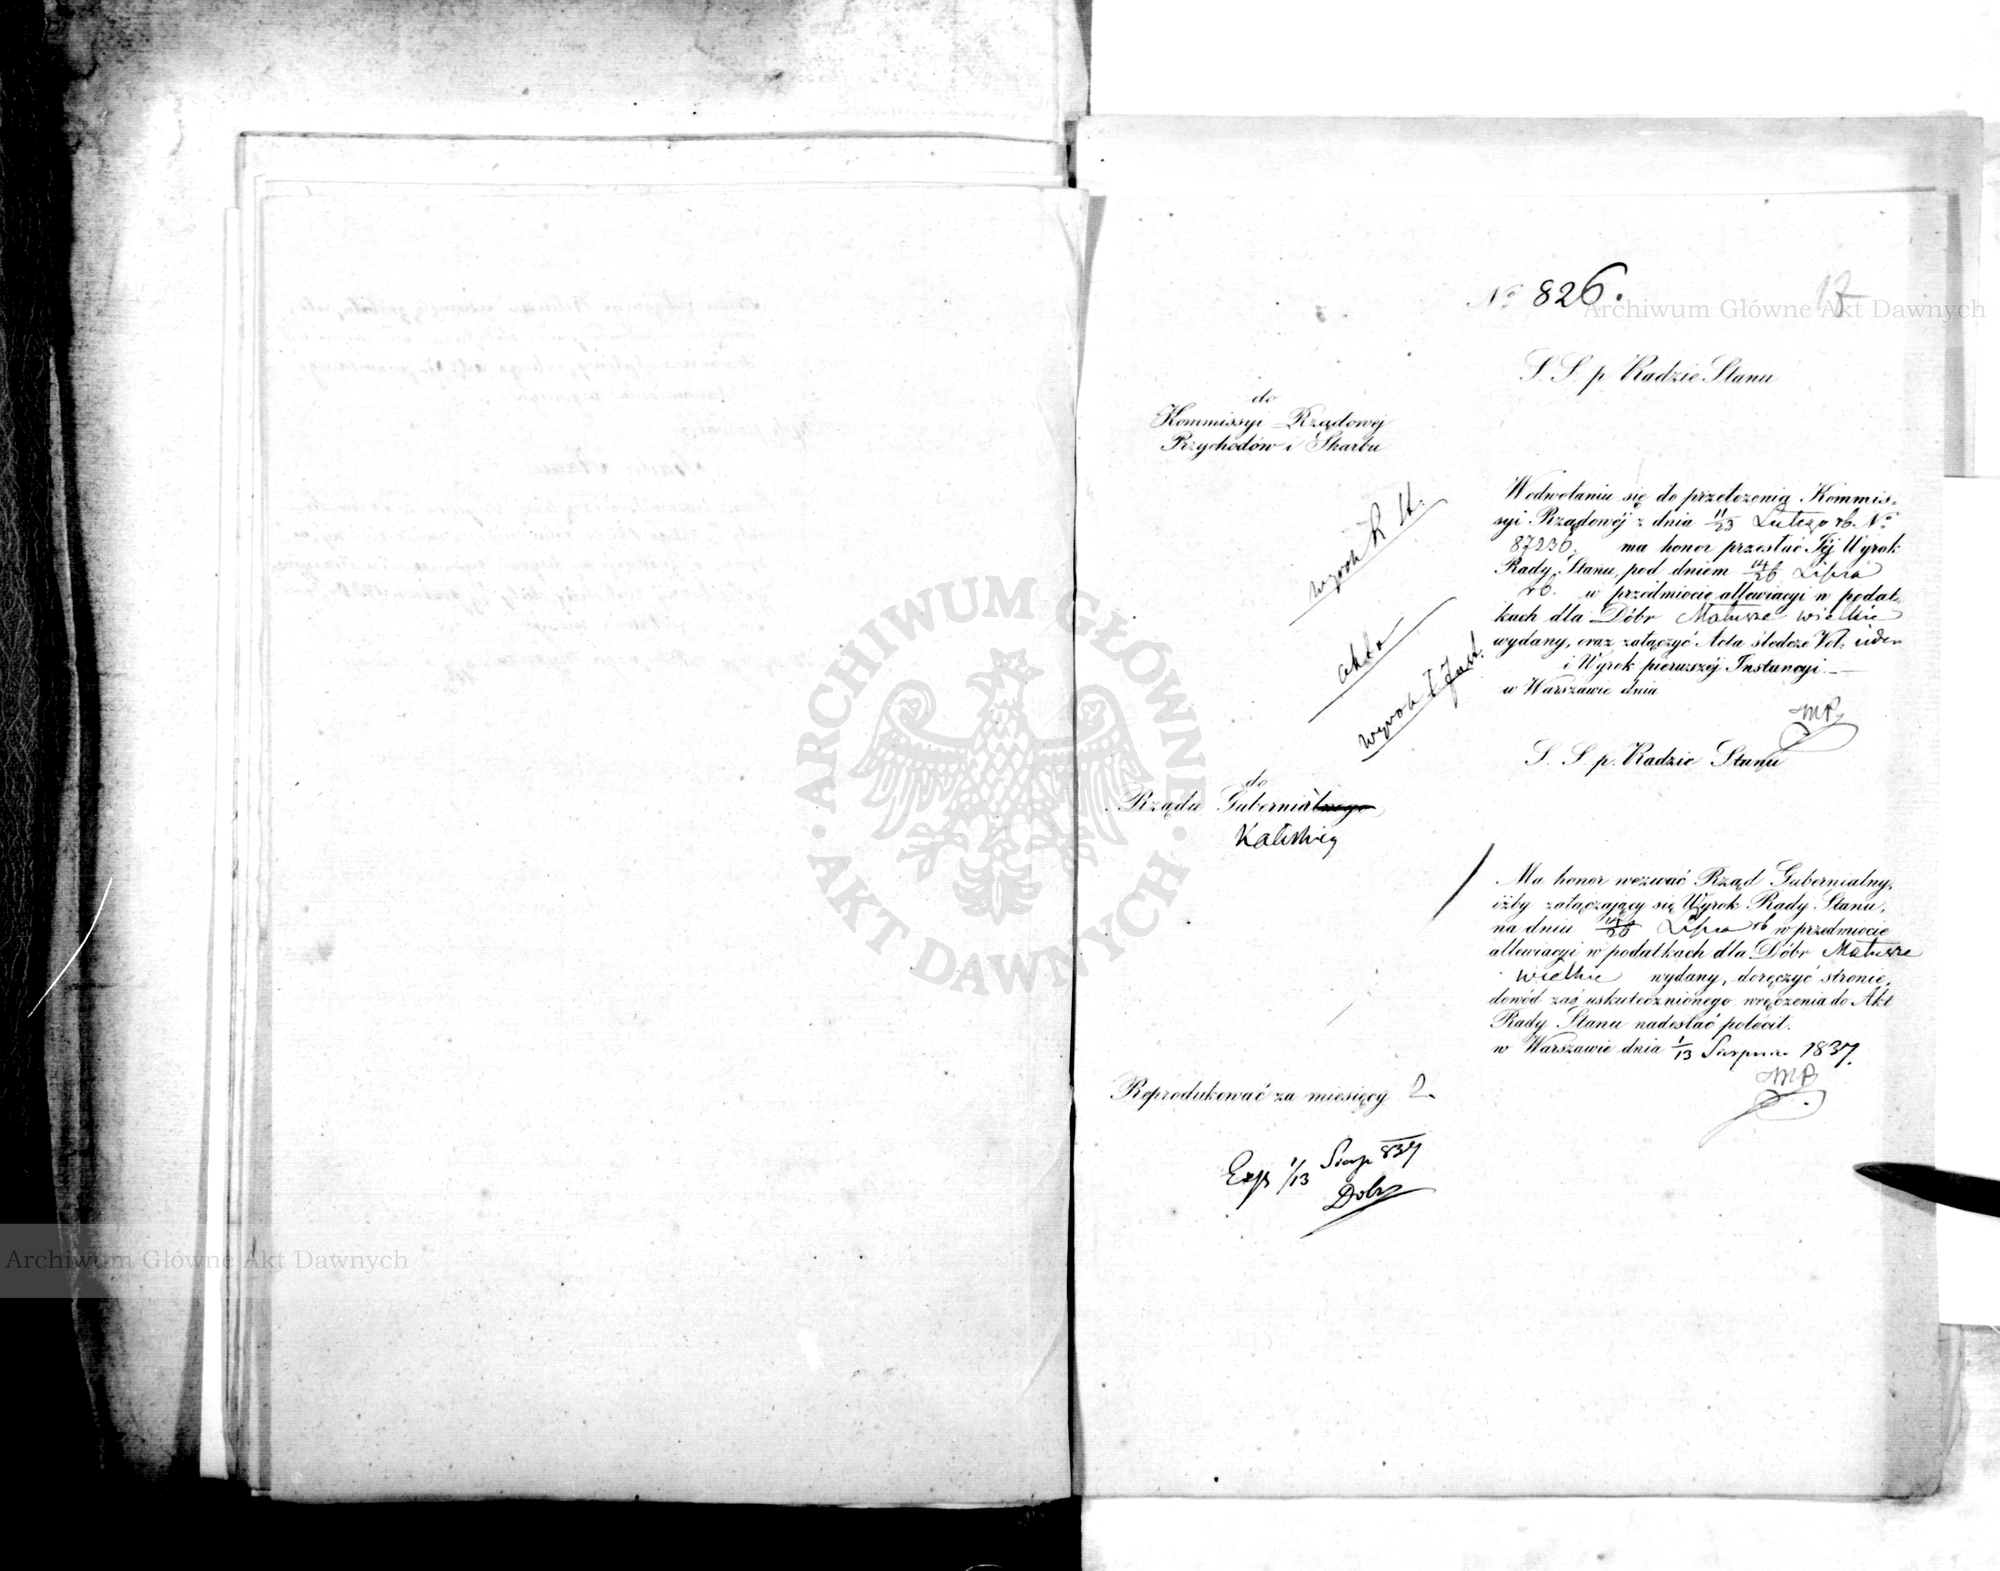 No 826.
17
Archiwum Główne Akt Dawnych
S. S. p. Radzie Stanu
do
Kommissyi Rządowéj
Przychodów i Skarbu
Wodwołaniu się do przełożenia Kommis-
syi Rządowéj z dnia 11/23 Lutego rb. No
87236. ma honor przesłać Jéj Wyrok
Rady Stanu pod dniem 14/26 Lipca
rb. w przedmiocie allewiacyi w podat-
kach dla Dóbr Małusze wielkie
wydany, oraz załączyć Acta śledcze Vol:
i Wyrok pierwszéj Instancyi.
w Warszawie dnia
wyrok R St.
akta
wyrok I Inst.
MP
S. S. p. Radzie Stanu
do
Rządu Gubernialnego
Kaliskieg
Ma honor wezwać Rząd Gubernialny,
iżby załączający się Wyrok Rady Stanu,
na dniu 14/26 Lipca rb w przedmiocie
allewiacyi w podatkach dla Dóbr Małusze
wielkie wydany, doręczyć stronie,
dowód zaś uskutecznionego wręczenia do Akt
Rady Stanu nadesłać polécił.
w Warszawie dnia 1/13 Sierpnia 1837.
MP
Reprodukować za miesięcy 2.
Exp 1/13 Sierp 837
Dobr
ARCHIWUM GŁÓWNE
AKT DAWNYCH
Archiwum Główne Akt Dawnych